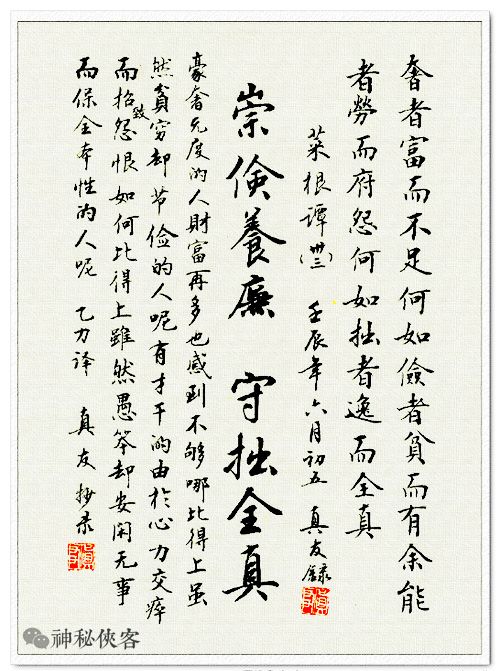 奢者富而不足何如儉者貧而有余能
者勞而府怨何如拙者逸而全真
菜根谭(卌三) 壬辰年六月初五 真友錄
崇儉養廉 守拙全真
豪奢无度的人財富再多也感到不够哪比得上虽
然貧穷却节俭的人呢有才干的由於心力交瘁
而招致怨恨如何比得上雖然愚笨却安闲无事
而保全本性的人呢 乙力译 真友抄录
神秘侠客